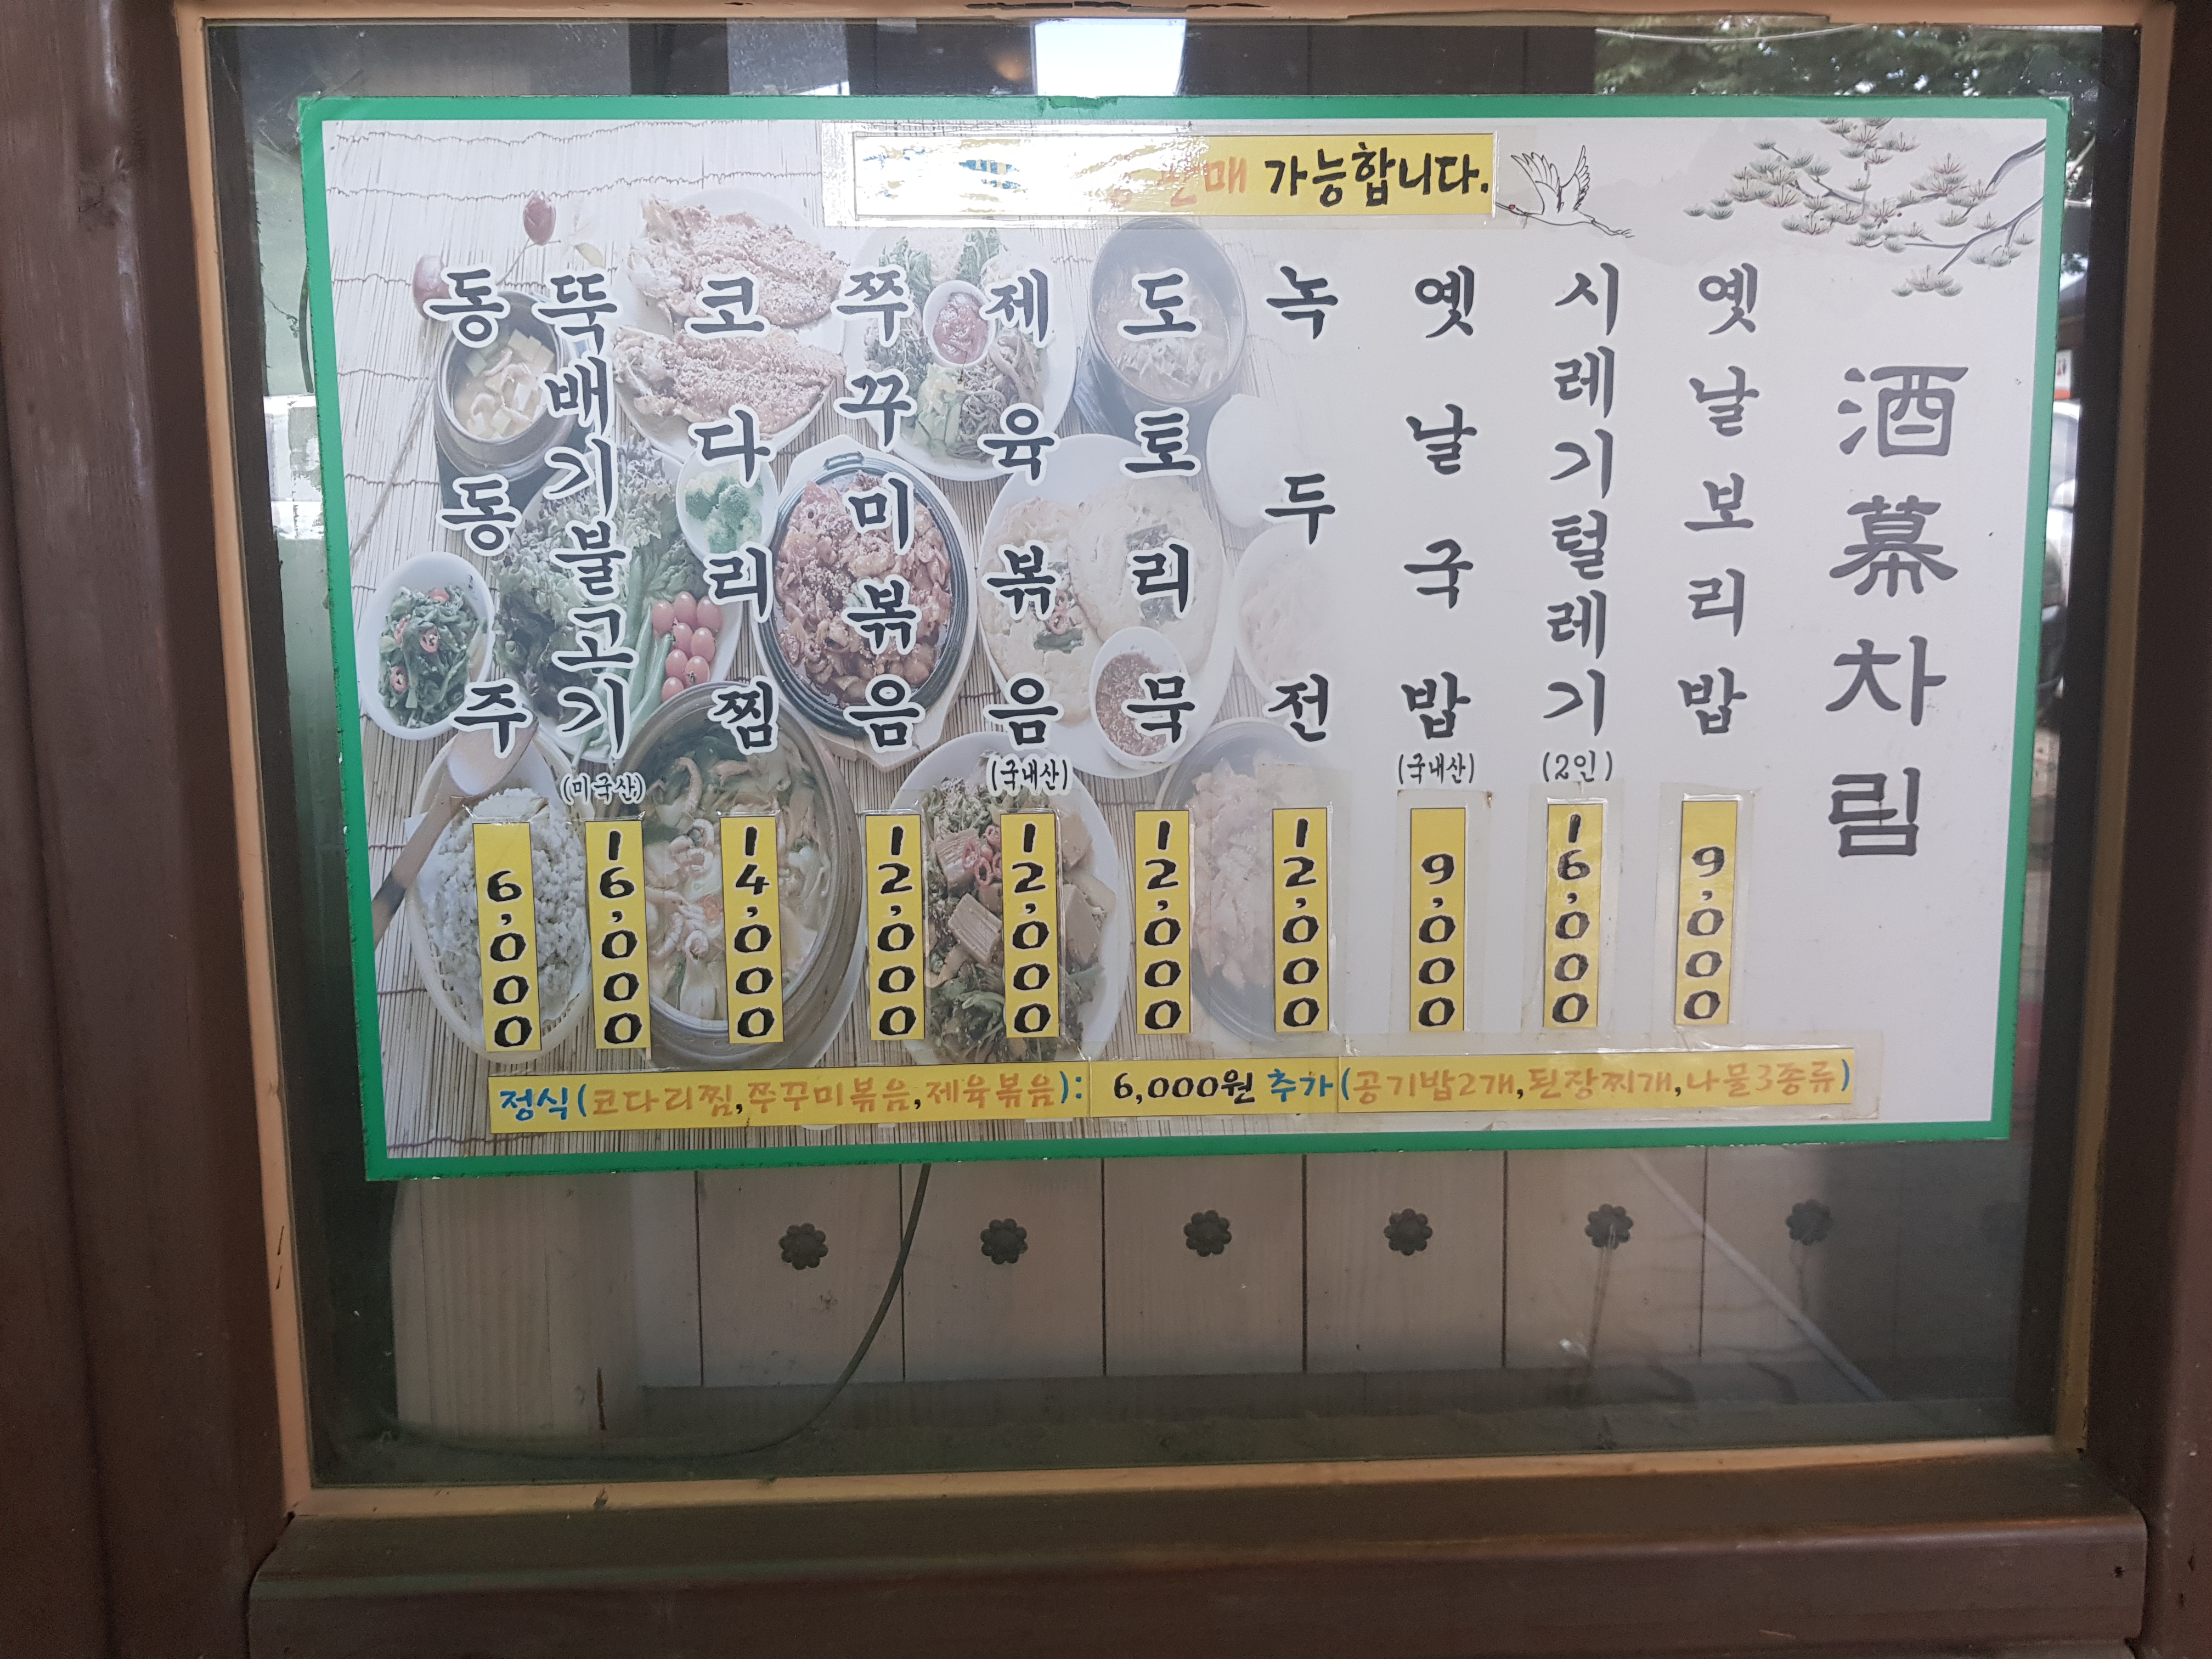 매 가능합니다.
酒幕차림
옛날보리밥
9,000
시레기털레기
(2인)
16,000
옛날국밥
(국내산)
9,000
녹두전
12,000
도토리묵
12,000
제육볶음
(국내산)
12,000
쭈꾸미볶음
12,000
코다리찜
14,000
뚝배기불고기
(미국산)
16,000
동동주
6,000
정식(코다리찜,쭈꾸미볶음,제육볶음): 6,000원 추가(공기밥2개,된장찌개,나물3종류)